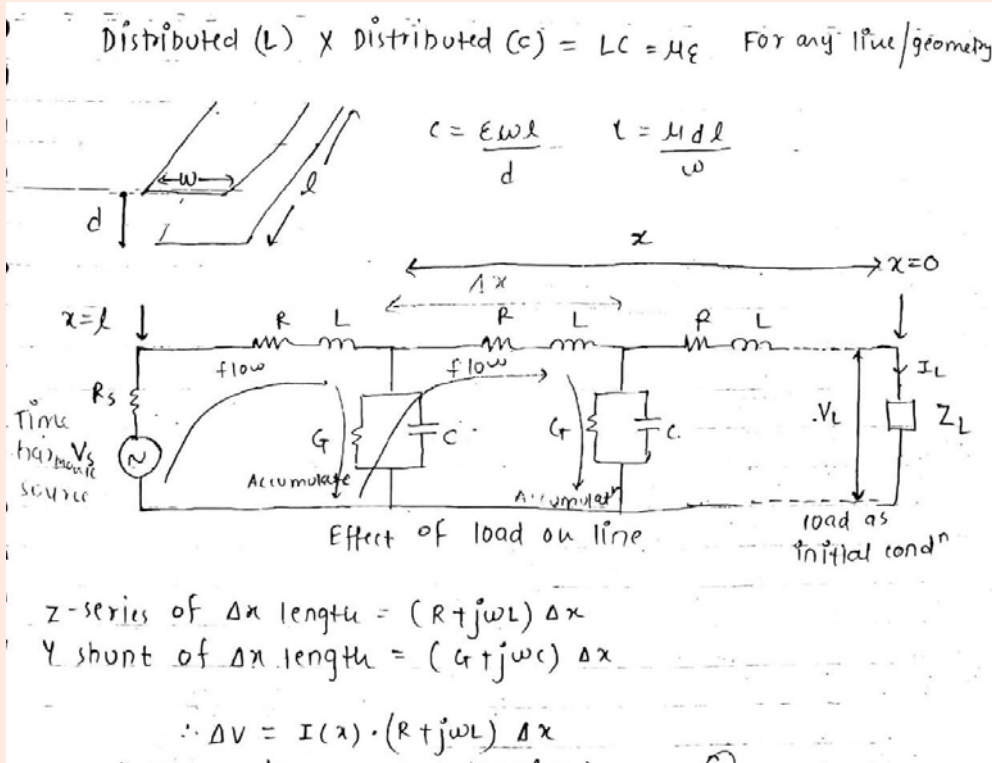 Distributed (L) x Distributed (C) = LC = με For any line/geometry
C = εwl/d L = μdl/w
w
l
d
x
x=0
Δx
x=l
R L R L R L
flow flow
IL
Rs
Time harmonic source
Vs
G C G C
VL
ZL
Accumulate Accumulatn
Effect of load on line
load as
initial condn
Z-series of Δx length = (R+jωL) Δx
Y shunt of Δx length = (G+jωC) Δx
∴ ΔV = I(x)·(R+jωL) Δx